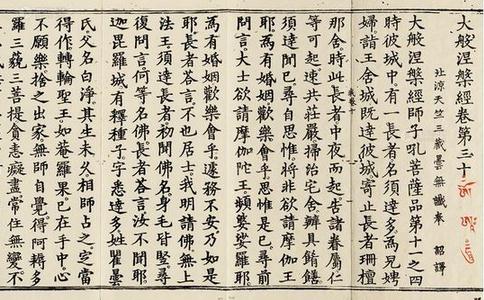 大般涅槃經卷第三十
北涼天竺三藏曇無讖奉 詔譯
大般涅槃經師子吼菩薩品第十一之四
時彼城中有一長者名須達多為兒娉
婦詣王舍城既達彼城寄止長者珊檀
那舍時此長者中夜而起告諸眷屬仁
等可起速共莊嚴掃治宅舍辦具餚饍
須達聞已尋自思惟將非欲請摩伽王
耶為有婚姻歡樂會乎思惟是已尋前
問言大士欲請摩伽陀王頻婆娑羅耶
為有婚姻歡樂會乎遽務不安乃如是
耶長者答言不也居士我明請佛無上
法王須達長者初聞佛名身毛皆豎尋
復問言何等名佛長者答言汝不聞耶
迦毘羅城有釋種子字悉達多姓瞿曇
氏父名白淨其生未久相師占之定當
得作轉輪聖王如菴羅果已在手中心
不願樂捨之出家無師自覺得阿耨多
羅三藐三菩提貪恚癡盡常住無變不